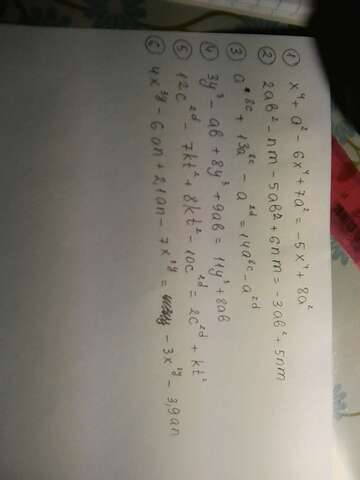 ① x⁴ + a² − 6x⁴ + 7a² = −5x⁴ + 8a²
② 2ab² − nm − 5ab² + 6nm = −3ab² + 5nm
③ a⁸ᶜ + 13a⁸ᶜ − a²ᵈ = 14a⁸ᶜ − a²ᵈ
④ 3y³ − ab + 8y³ + 9ab = 11y³ + 8ab
⑤ 12c²ᵈ − 7kt² + 8kt² − 10c²ᵈ = 2c²ᵈ + kt²
⑥ 4x¹ʸ − 6an + 2,1an − 7x¹ʸ = − 3x¹ʸ − 3,9an